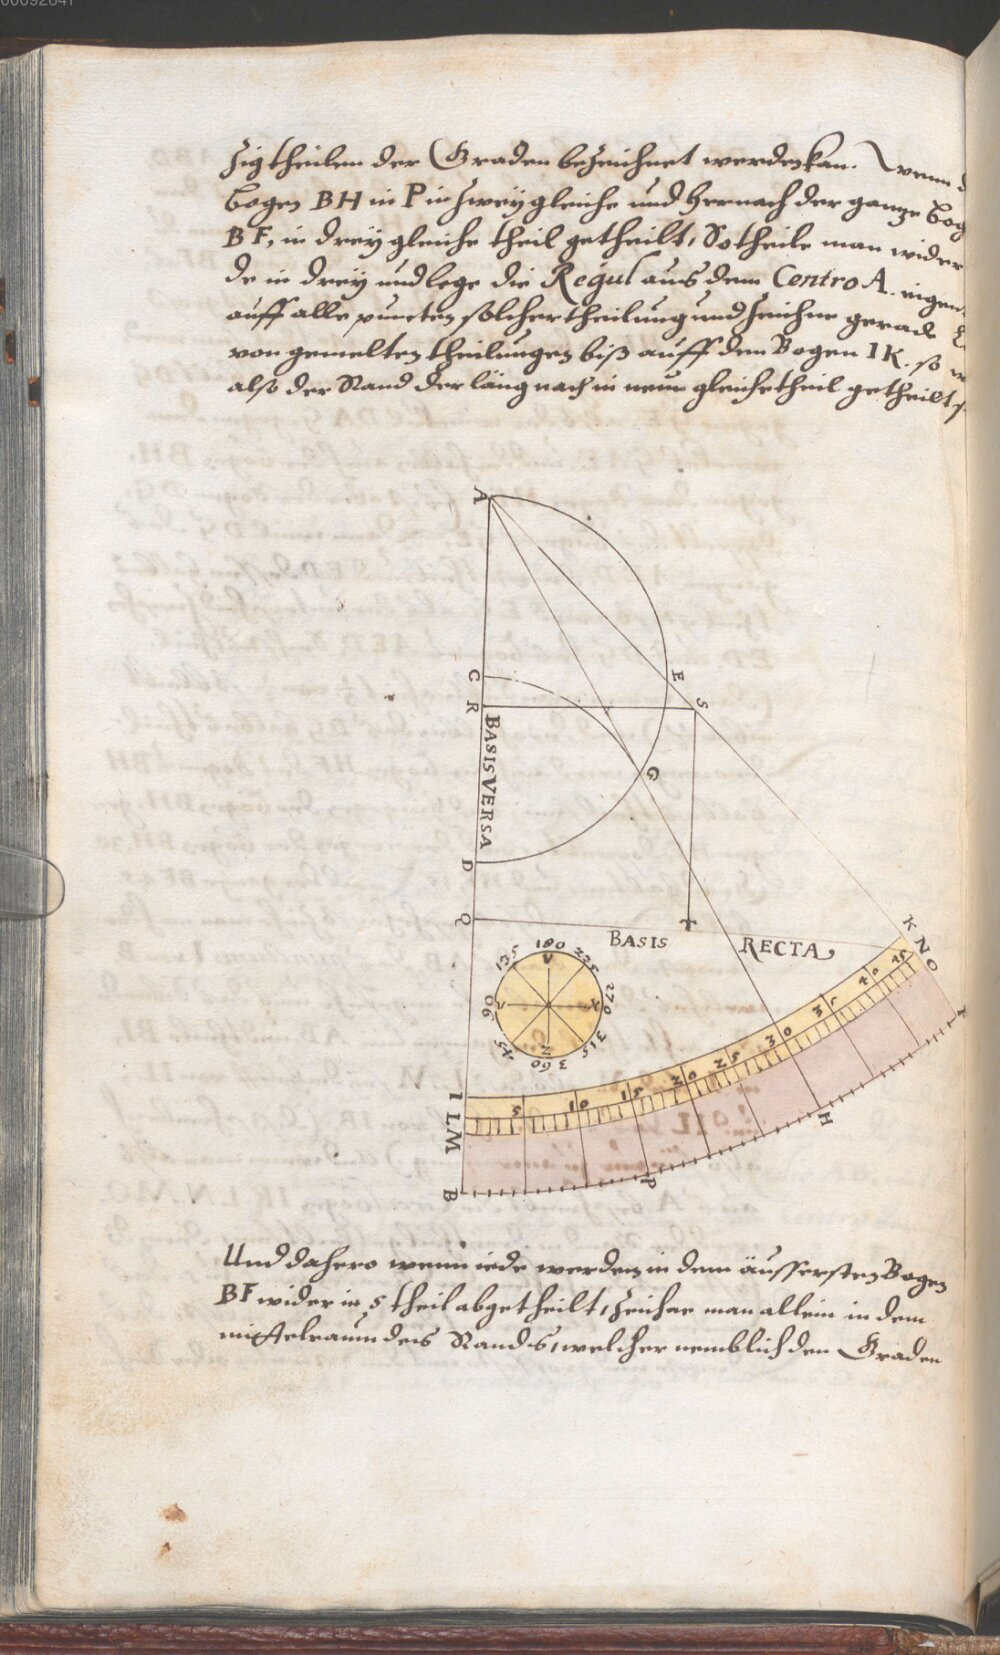 00092847
zig theilen der Graden bezeichnet werden kan. Wenn
bogen BH in P in zwey gleiche und hernach der ganze bog
BF, in drey gleiche theil getheilt, So theile man wider
de in drey und lege die Regul aus dem Centro A. eigen
auff alle puncten solcher theilung und zeichne gerade
von gemelten theilungen biß auff den Bogen IK. so
also der Rand der läng nach in neun gleiche theil getheilt
A
C
E
R
S
BASIS VERSA
G
D
Q
T
BASIS RECTA
K
N
O
180
225
270
315
360
45
90
135
V
Z
5
10
15
20
25
30
35
40
45
I
L
M
B
P
H
Und dahero wenn iede werden in dem äussersten Bogen
BF wider in 5 theil abgetheilt, zeichne man allein in dem
mittelraum des Rands, welcher nemblich den Graden